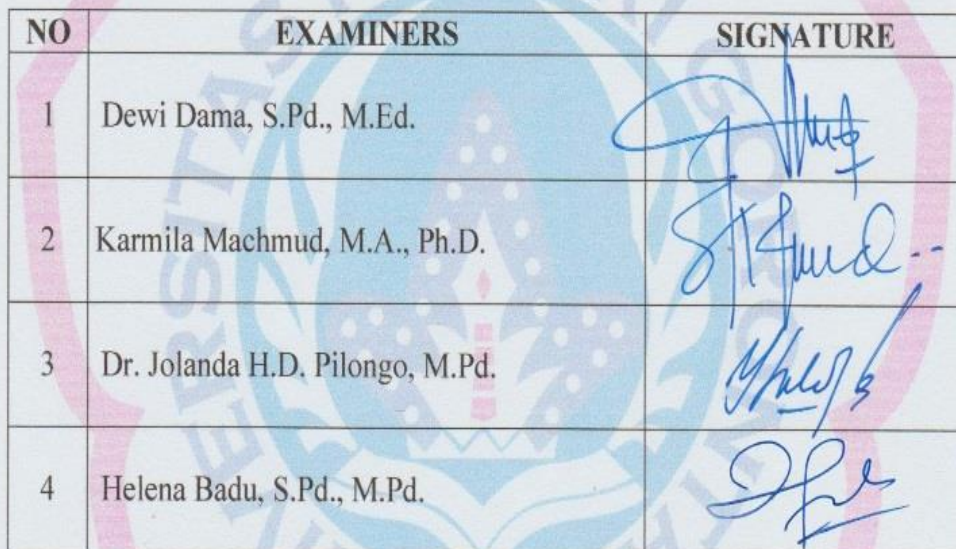 NO EXAMINERS SIGNATURE
1 Dewi Dama, S.Pd., M.Ed.
2 Karmila Machmud, M.A., Ph.D.
3 Dr. Jolanda H.D. Pilongo, M.Pd.
4 Helena Badu, S.Pd., M.Pd.